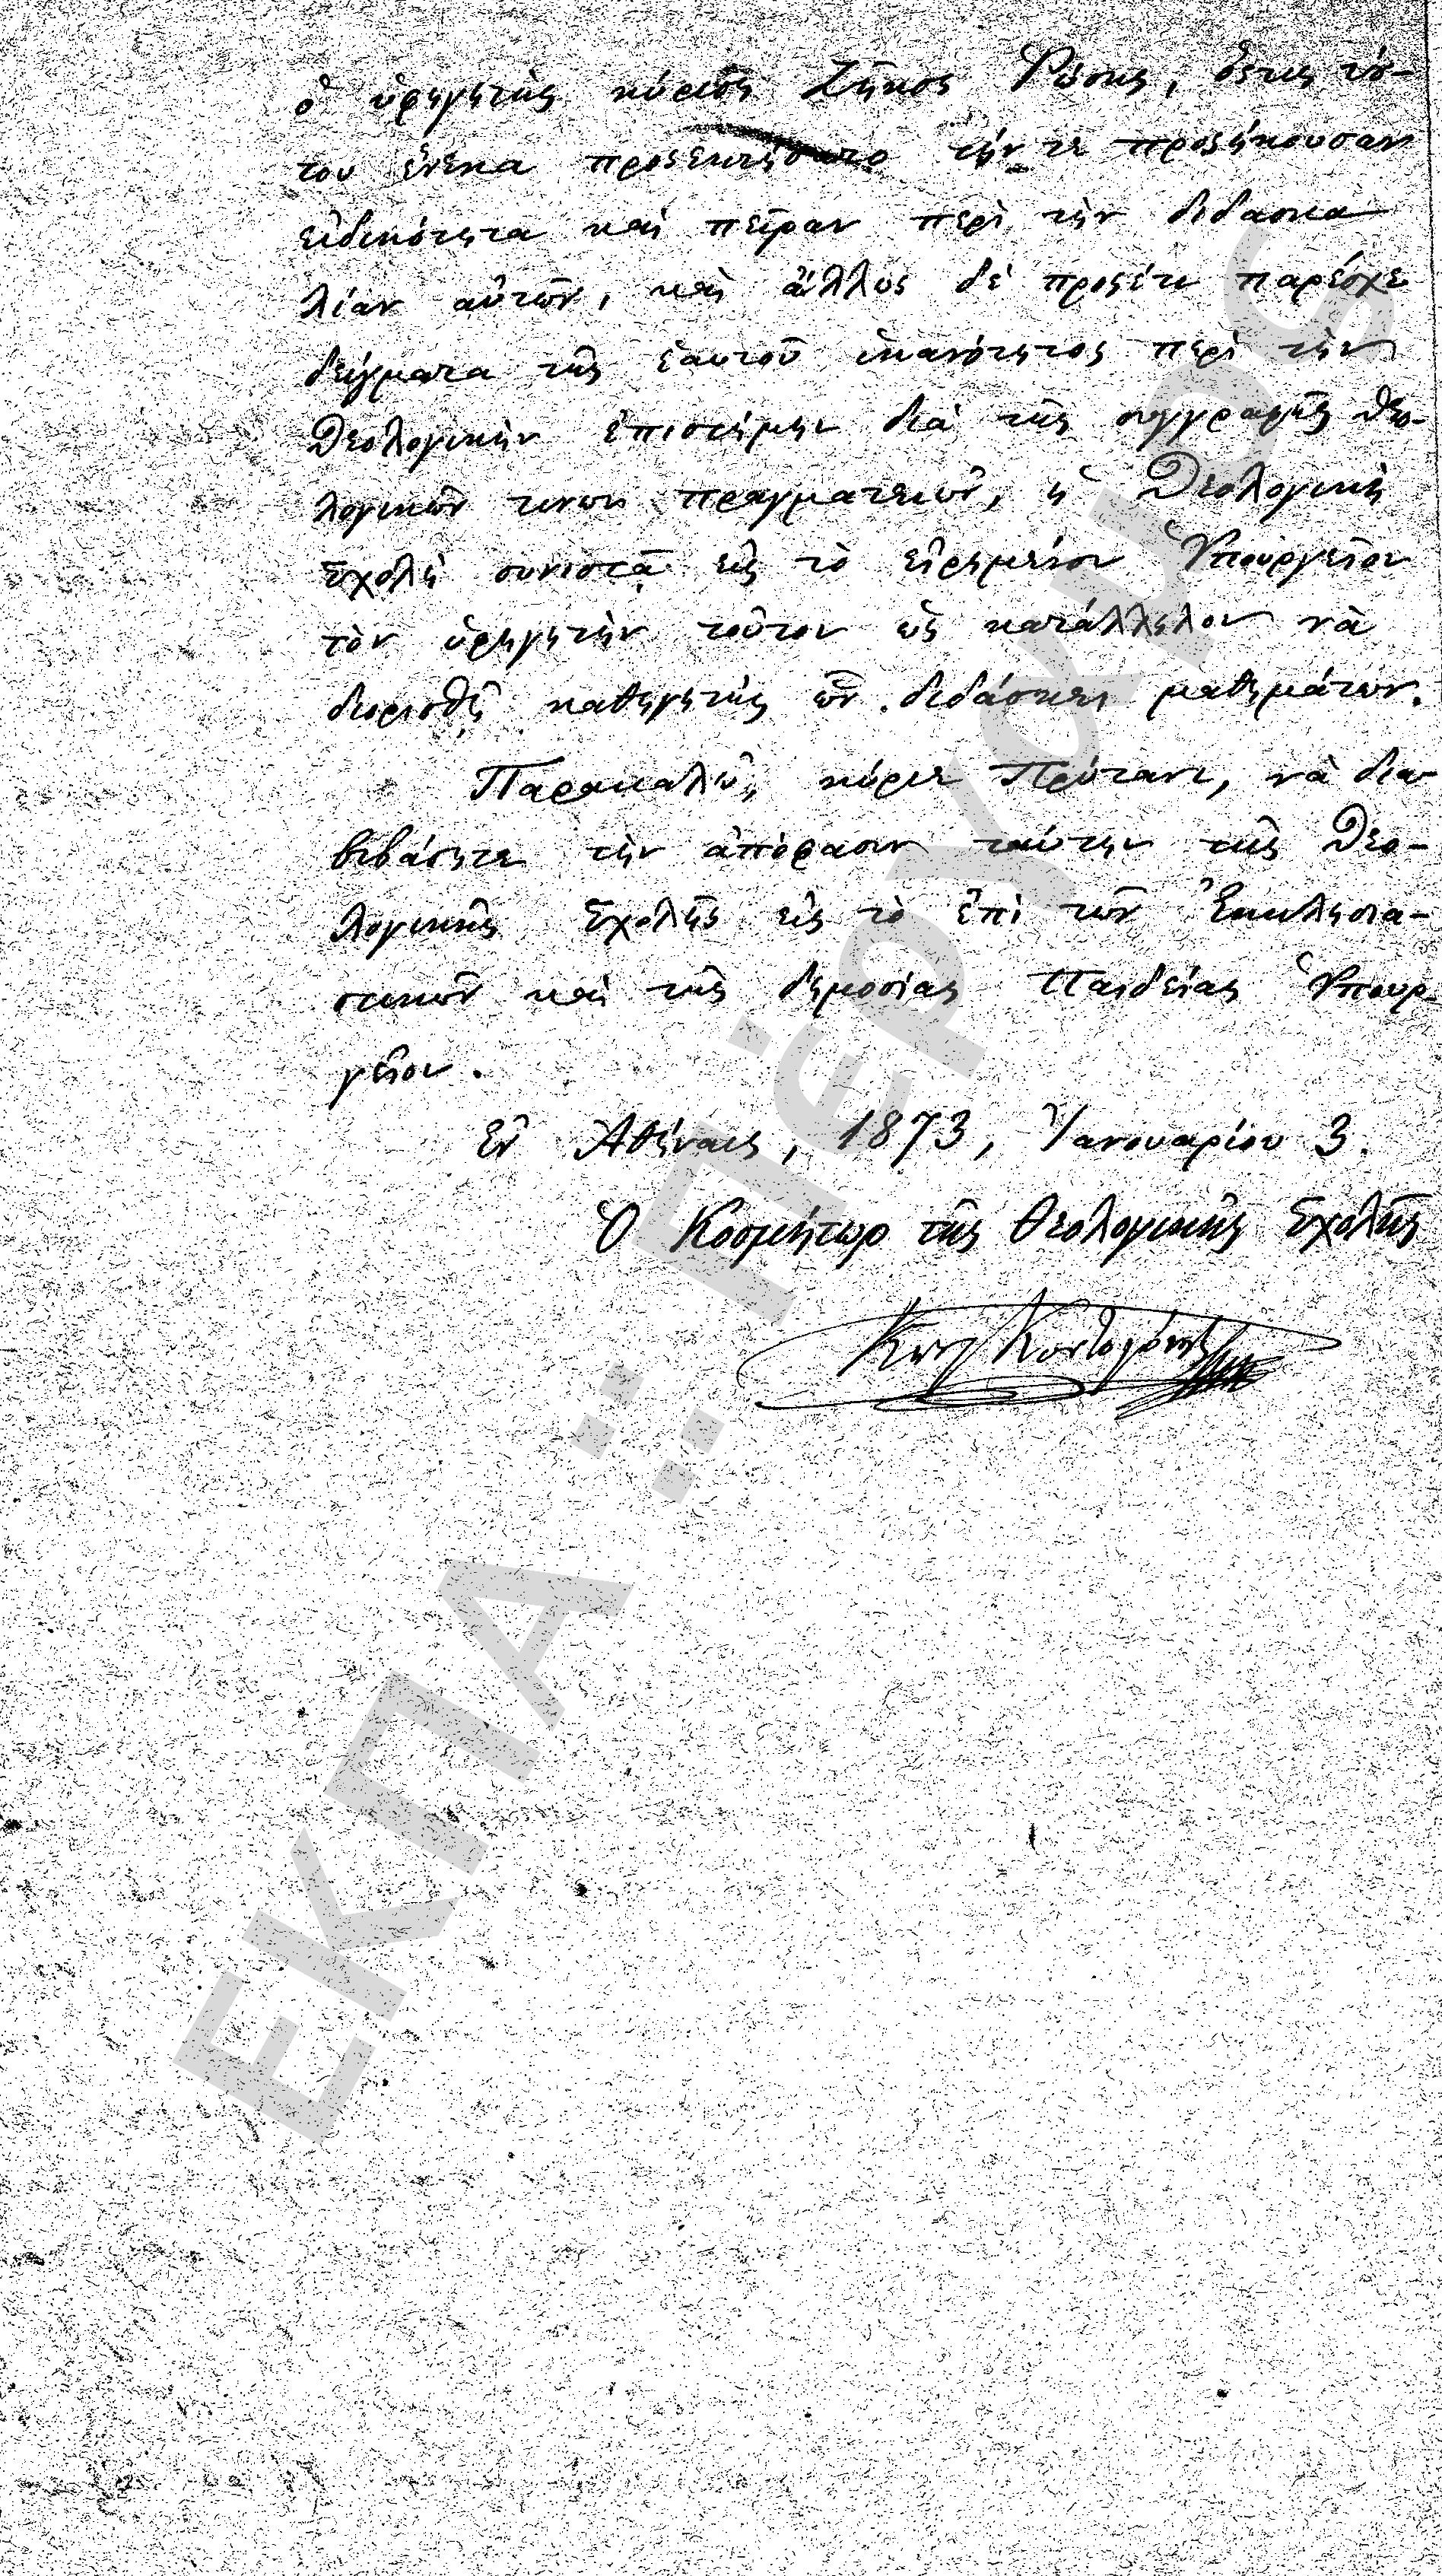 ὁ ὑφηγητὴς κύριος Ζῆκος Ῥώσης, ὅστις τού-
του ἕνεκα προσεκτήσατο τήν τε προσήκουσαν
εἰδικότητα καὶ πεῖραν περὶ τὴν διδασκα
λίαν αὐτῶν, καὶ ἄλλως δὲ προσέτι παρέσχε
δείγματα τῆς ἑαυτοῦ ἱκανότητος περὶ τὴν
Θεολογικὴν ἐπιστήμην διὰ τῆς συγγραφῆς Θεο-
λογικῶν τινων πραγματειῶν, ἡ Θεολογικὴ
Σχολὴ συνιστᾷ εἰς τὸ εἰρημένον Ὑπουργεῖον
τὸν ὑφηγητὴν τοῦτον ὡς κατάλληλον νὰ
διορισθῇ καθηγητὴς ὧν διδάσκει μαθημάτων.
Παρακαλῶ, κύριε Πρύτανι, νὰ δια-
βιβάσητε τὴν ἀπόφασιν ταύτην τῆς Θεο-
λογικῆς Σχολῆς εἰς τὸ ἐπὶ τῶν Ἐκκλησια-
στικῶν καὶ τῆς δημοσίας Παιδείας Ὑπουρ-
γεῖον.
Ἐν Ἀθήναις, 1873, Ἰανουαρίου 3.
Ὁ Κοσμήτωρ τῆς Θεολογικῆς Σχολῆς
Κων Κοντογόνης
ΕΚΠΑ :: Πέργαμος